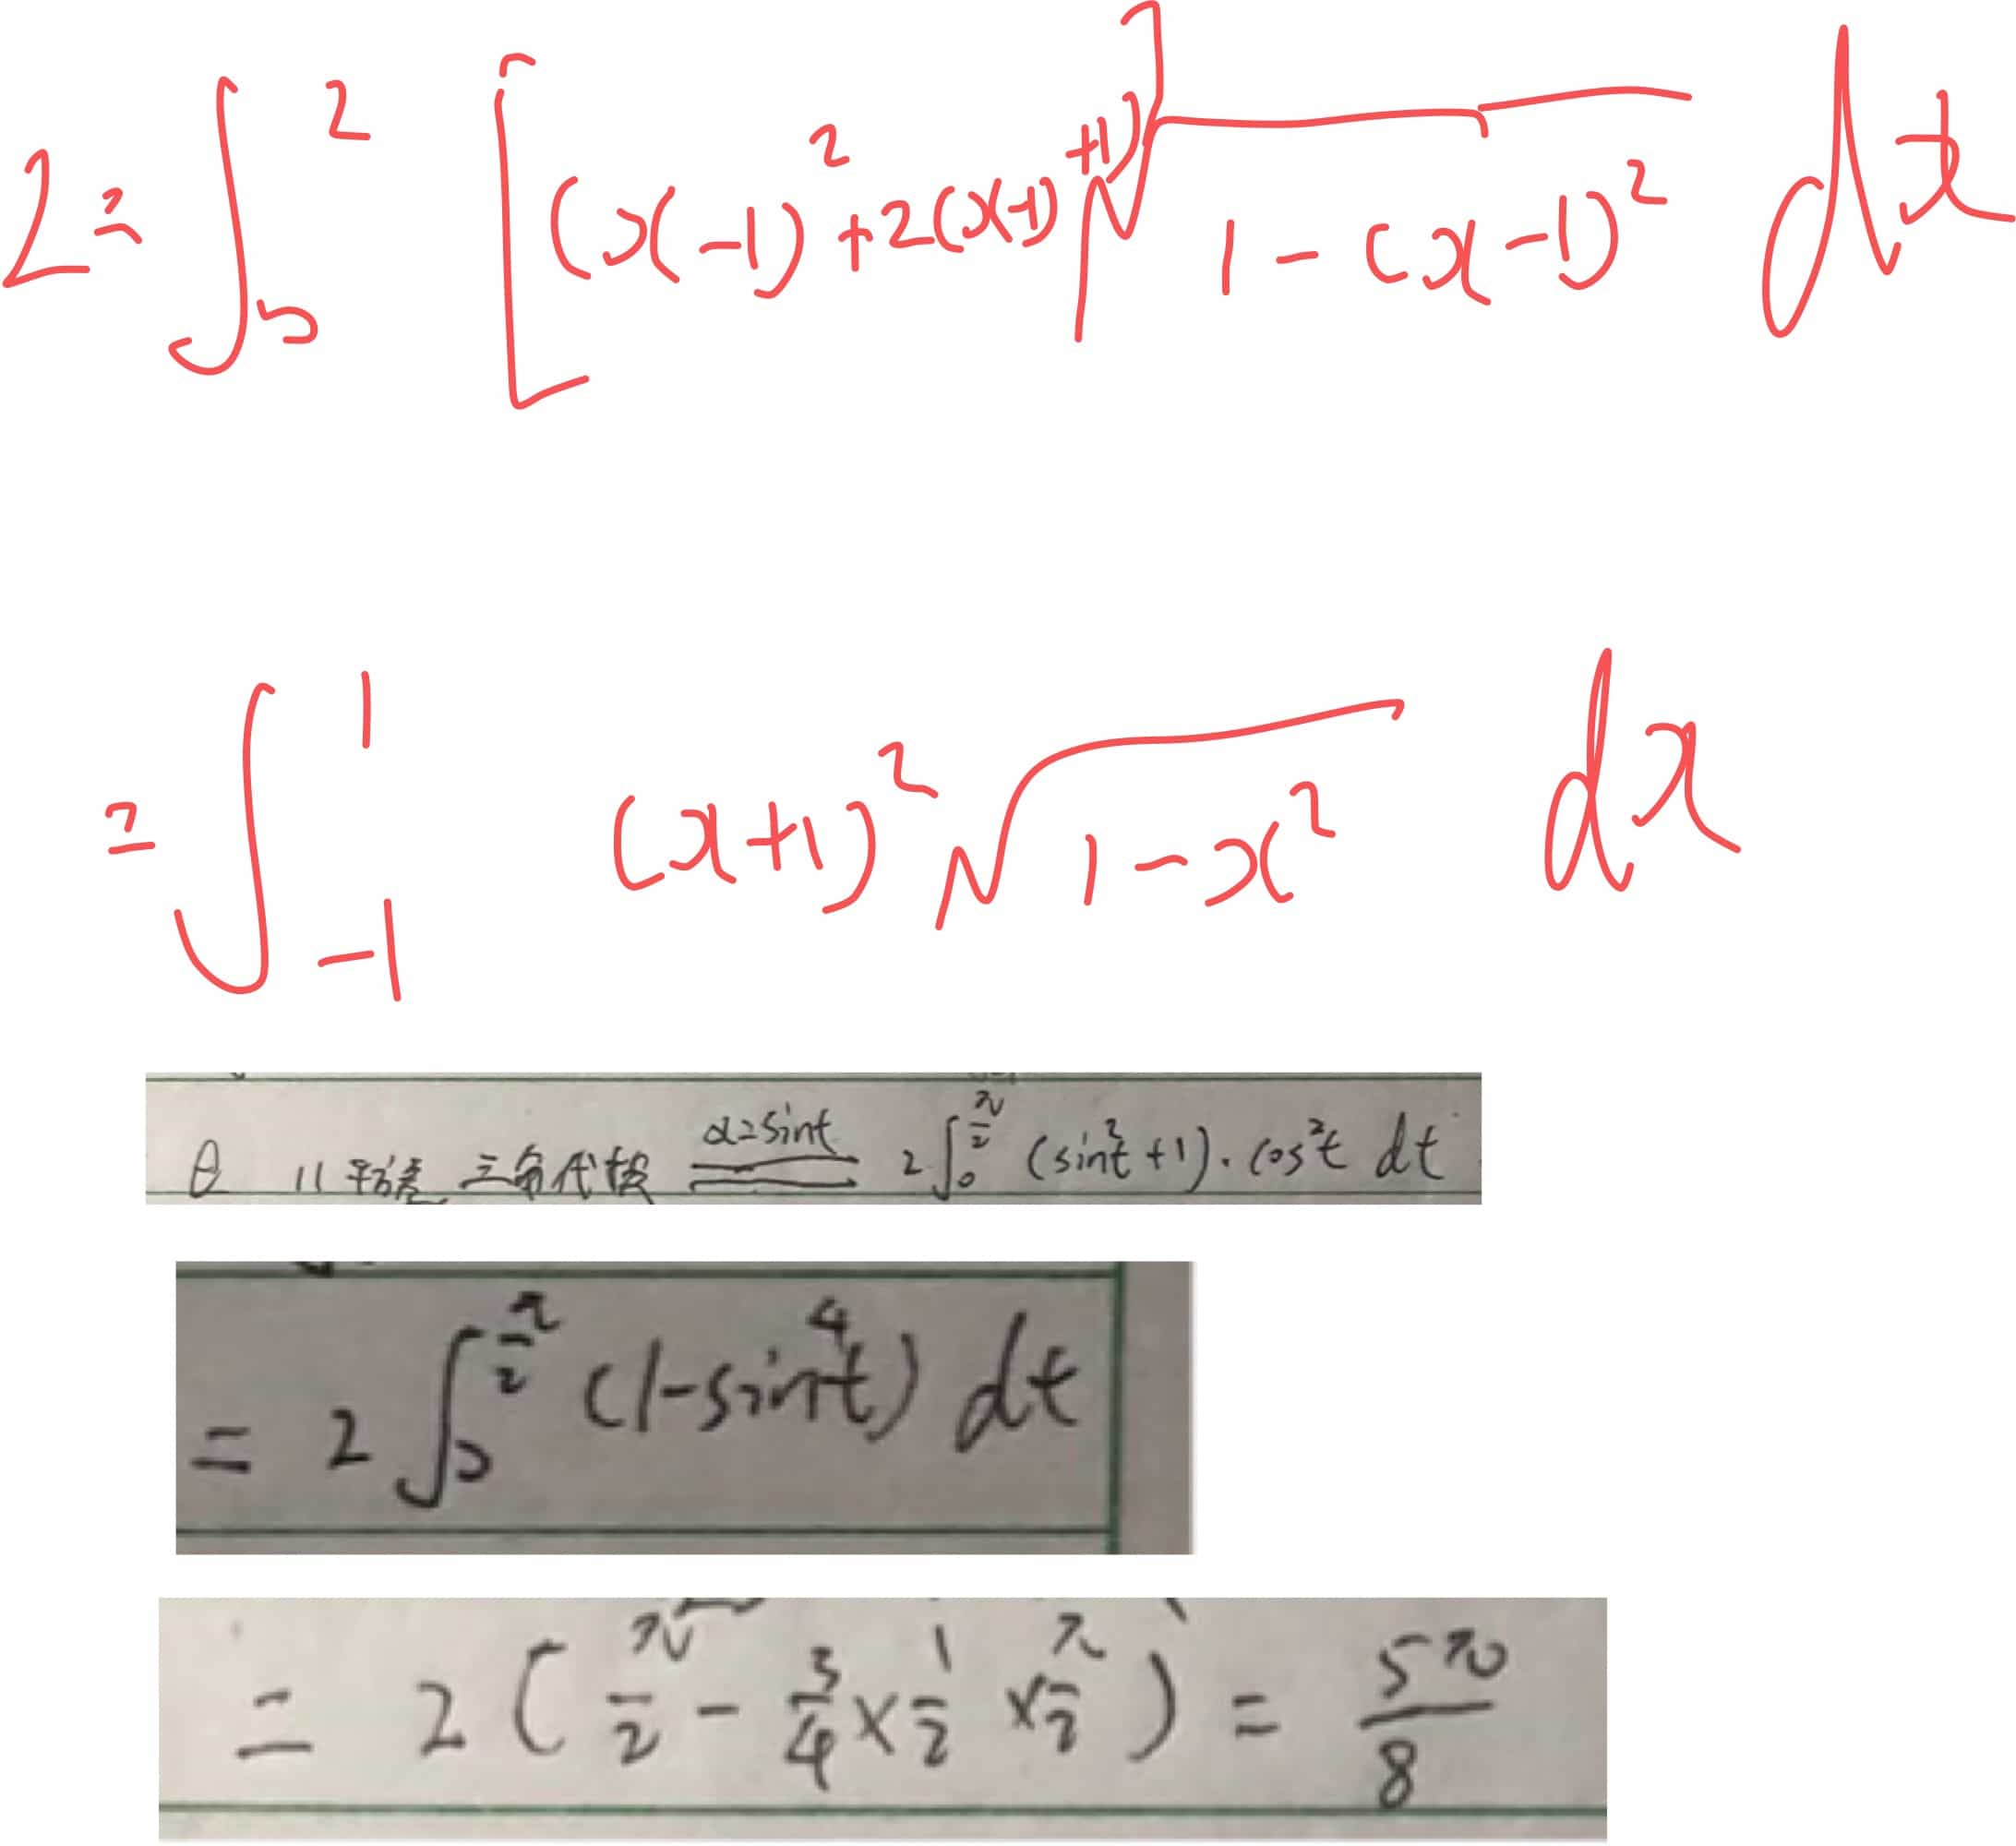 I = ∫₀² [(x-1)² + 2(x-1) + 1] √(1-(x-1)²) dx
= ∫₋₁¹ (x+1)² √(1-x²) dx
θ 11 平方差 三角代换 x=sint 2∫₀^(π/2) (sin²t+1)·cos²t dt
= 2∫₀^(π/2) (1-sin⁴t) dt
= 2(π/2 - 3/4 × 1/2 × π/2) = 5π/8